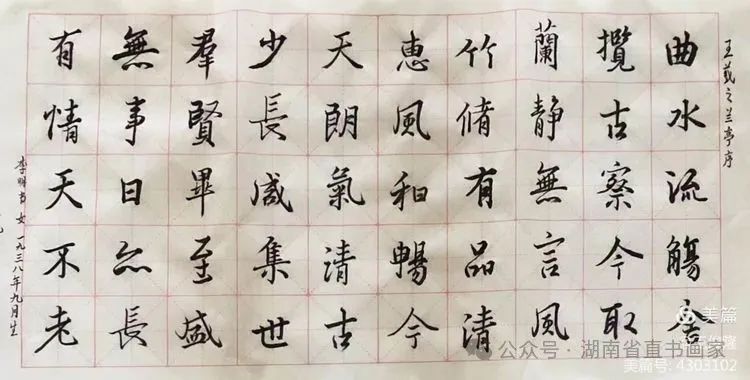 王羲之兰亭序
曲水流觴
攬古察今取
蘭靜無言風
竹脩有品清
惠風和暢今
天朗氣清古
少長咸集世
羣賢畢至盛
無事日亦長
有情天不老
李明书 女 一九三八年九月生
美篇
公众号·湖南省直书画家
美篇号: 4303102